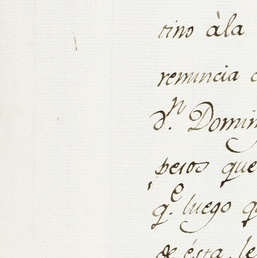 tino àla
renuncia
dⁿ. Domin
pesos que
qᵉ. luego q
de ésta, le